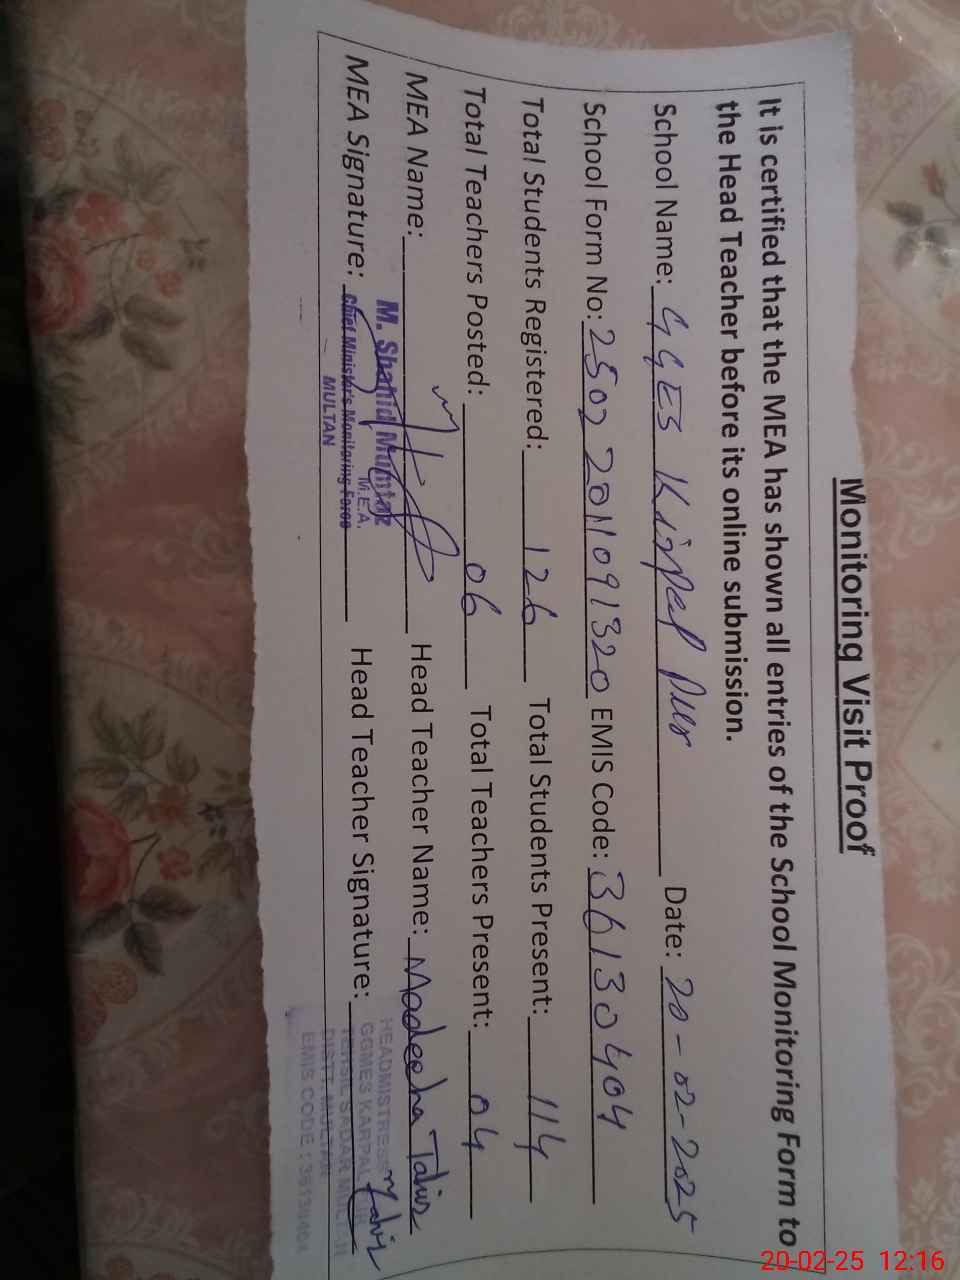 Monitoring Visit Proof
It is certified that the MEA has shown all entries of the School Monitoring Form to
the Head Teacher before its online submission.
School Name: GGES Date: 20-02-2025
School Form No: 25022011091320 EMIS Code: 36130404
Total Students Registered: 126 Total Students Present: 114
Total Teachers Posted: 06 Total Teachers Present: 04
MEA Name: Head Teacher Name: Madeeha
M. Shahid Mumtaz
M.E.A.
MEA Signature: Head Teacher Signature:
Chief Minister's Monitoring Force
MULTAN
HEADMISTRESS
GGMES KARPAL
TEHSIL SADAR MULTAN
DISTT. MULTAN
EMIS CODE : 36130404
20-02-25 12:16